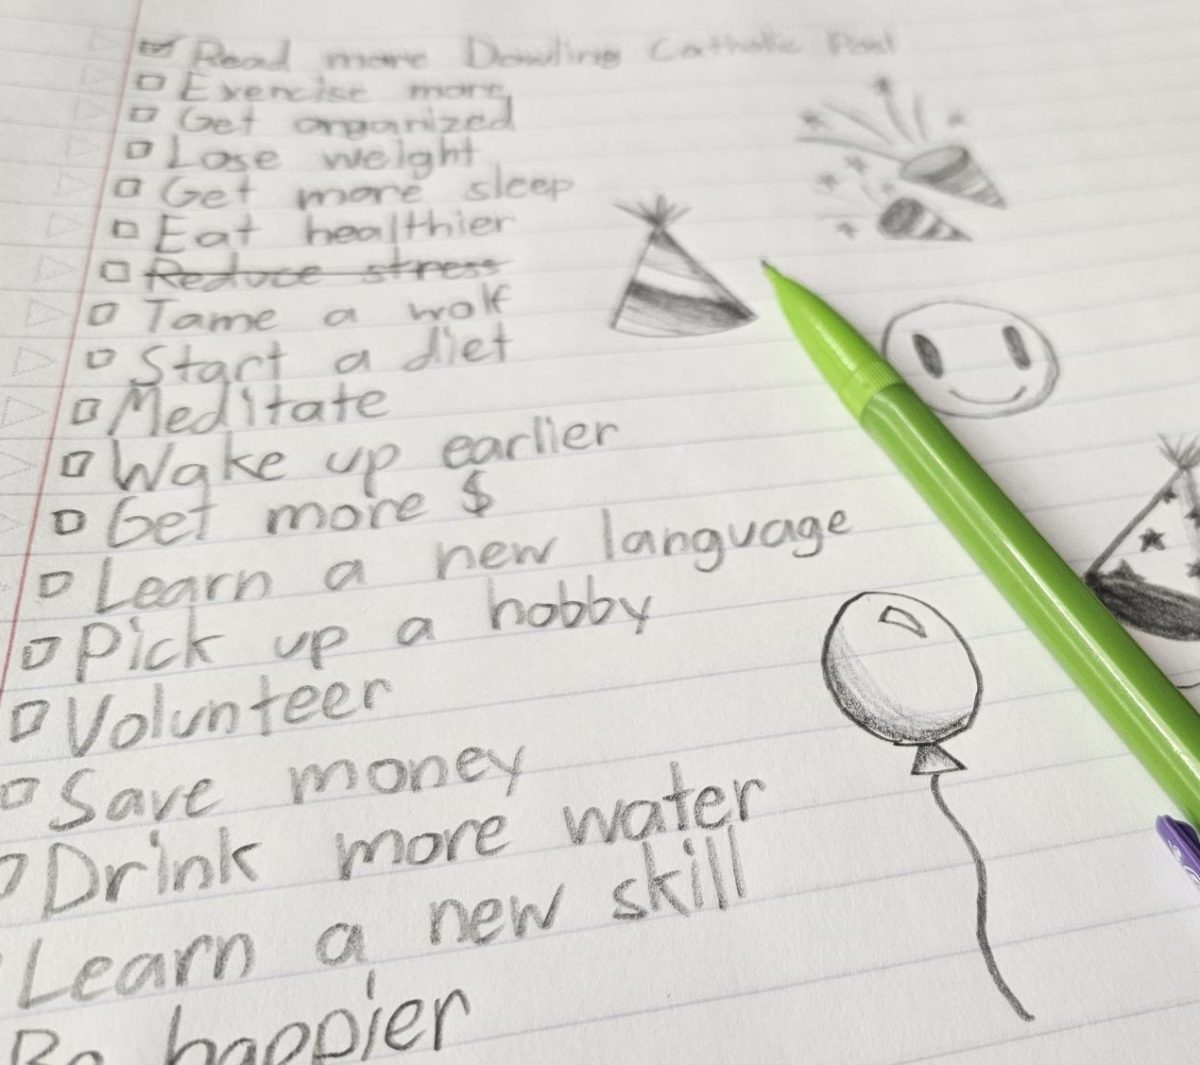 Read more Dowling Catholic Post
Exercise more
Get organized
Lose weight
Get more sleep
Eat healthier
Reduce stress
Tame a wolf
Start a diet
Meditate
Wake up earlier
Get more $
Learn a new language
Pick up a hobby
Volunteer
Save money
Drink more water
Learn a new skill
Be happier